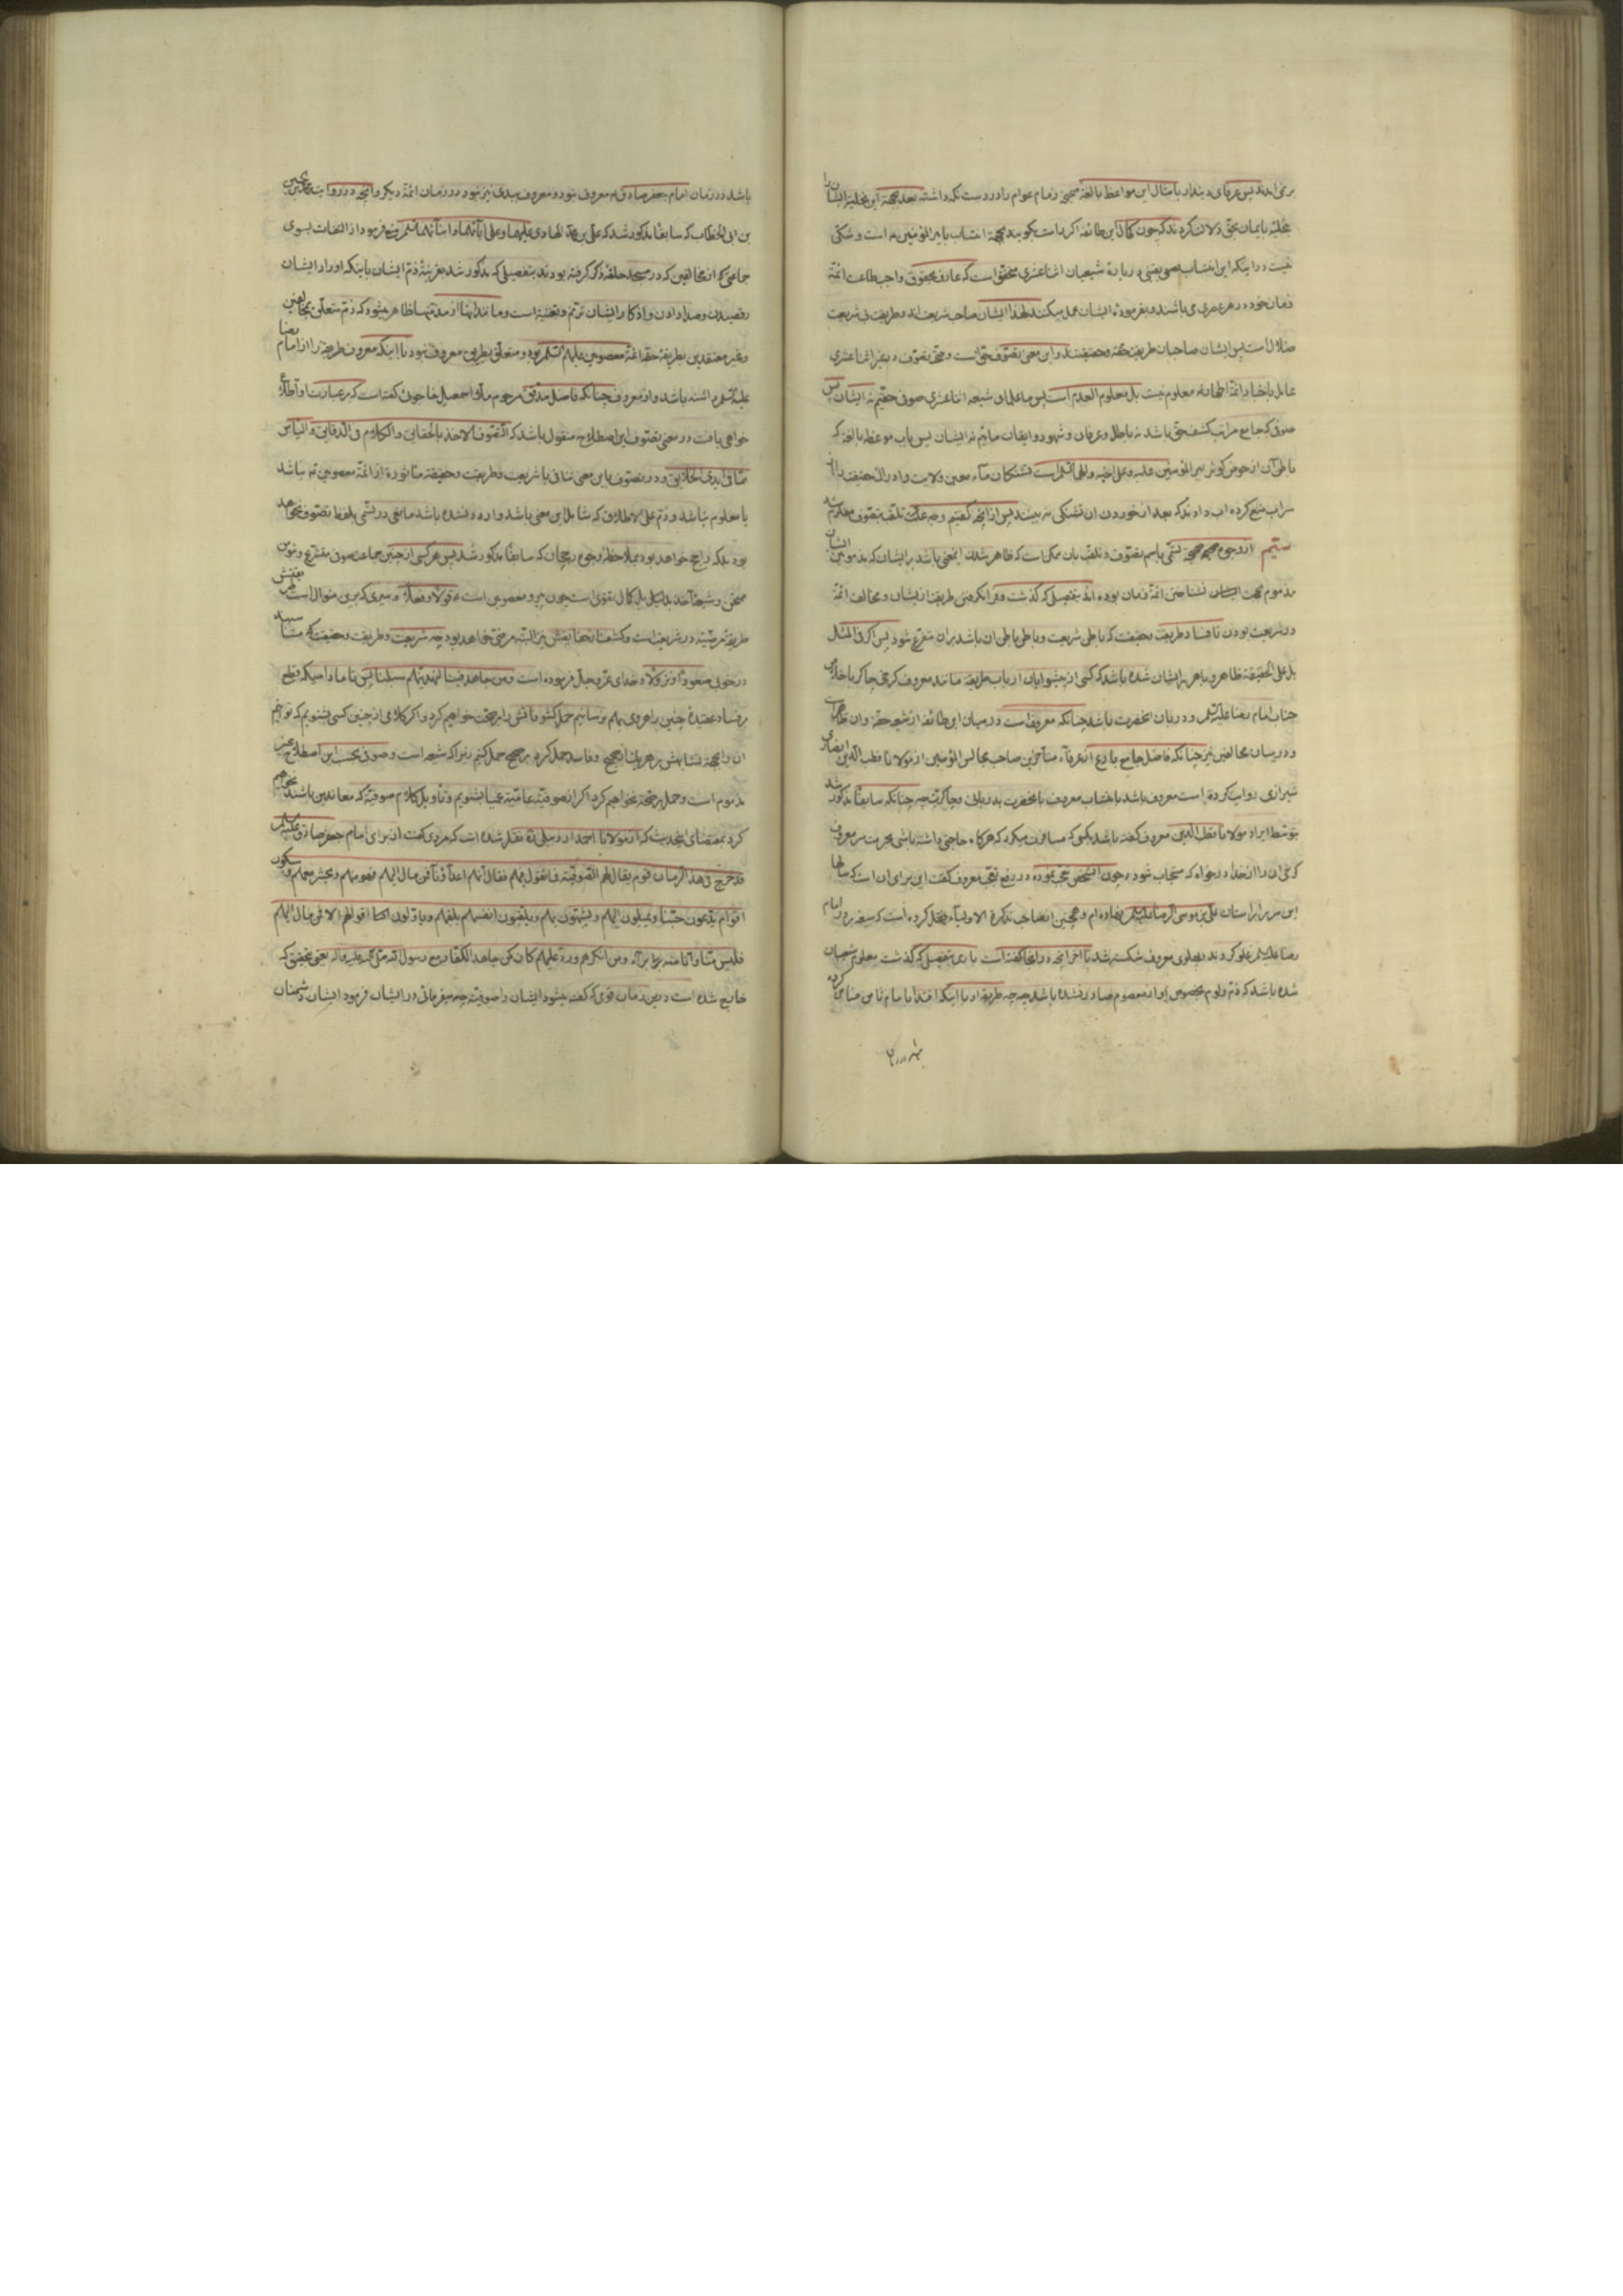 برنمی‌آیدند پس عرفای دیندار بامثال این مواعظ بالغه صحیحه زمام عوام را در دست نگه داشته بعد بجهة این تخلیه ایشان را
تحلیه بایمان بحق دلالت کردند که چون کمال این طائفه اگر راست بگویند بجهة انتساب بامیر المؤمنین ع است و شکی
نیست در اینکه این انتساب بعمل یعنی در بارهٔ شیعیان اثنا عشری محقق است که عارف بحقوق واجب طاعت ائمهٔ
زمان خود در هر عصری می باشند و بفرمودهٔ ایشان عمل میکنند لهذا ایشان صاحب شریعت‌اند و طریقت بی شریعت
ضلال است پس ایشان صاحبان طریقت حقه و حقیقتند و این معنی تصوف حق است و تحقق تصوف در غیر اثنا عشری
عامل باخبار ائمهٔ اطهار نه معلوم نیست بل معلوم العدم است پس ما علمای شیعه اثنا عشری صوفی حقیم نه ایشان پس
صوفی که جامع مراتب کشف حق باشد نه باطل و عرفان و شهود و ایقان مائیم نه ایشان پس بآب موعظه بالغه که
باطن آن از حوض کوثر امیر المؤمنین علیه و علی اخیه و الهما السلم است تشنگان ماء معین ولایت و ادراک حقیقت را از
سراب منع کرده آب دادند که بعد از خوردن آن تشنگی نه بینند پس از آنچه گفتیم وجه علت تلقب بتصوف معلوم شد
سیّم از وجوه صحیحه تسمّی باسم تصوف و تلقب بآن ممکن است که ظاهر شدن اینمعنی باشد بر ایشان که مذمومین ایشان
مذموم بجهت نشناختن ائمهٔ زمان بوده اند بتفصیلی که گذشت و فرا نگرفتن طریقت از ایشان و مخالفت ائمهٔ
در شریعت بودن تا فساد طریقت و حقیقت که باطن شریعت و باطن باطن آن باشد بران متفرع شود پس اگر فی المثل
بل علی الحقیقه ظاهر و باهر بر ایشان شده باشد که کسی از پیشوایان ارباب طریقه مانند معروف کرخی چاکر با خلاص
جناب امام رضا علیه السلم و دربان آنحضرت باشد چنانکه معروف است در میان این طائفه از شیعه حقه و آن ظاهر است
و در میان مخالفین نیز چنانکه فاضل جامع بارع از عرفاء متأخرین صاحب مجالس المؤمنین از مولانا قطب الدین انصاری
شیرازی روایت کرده است معروف باشد بانتساب معروف بآنحضرت بدربانی و چاکری چه چنانکه سابقا مذکور شد
بتوسط ایراد مولانا قطب الدین معروف گفته باشد بکسی که مسافرت میکرد که هرگاه حاجتی داشته باشی بحرمت سر معروف
کرخی آن را از خدا درخواه که مستجاب شود و چون آن شخص تعجب نموده در رفع تعجب معروف گفت این برای آن است که سالها
این سر بر آستان علی بن موسی الرضا علیه السلم نهاده ام و همچنین از صاحب تذکرة الاولیاء نقل کرده است که سفر روز امام
رضا علیه السلم غلو کردند و پهلوی معروف شکسته شد تا آخر آنچه در اینجا گفته است باری بتفصیلی که گذشت معلوم شیعیان
شده باشد که ذم و لوم بخصوص او از معصوم صادر نشده باشد چه چه طریقهٔ او با اینکه اقتدا بامام ثامن ضامن کرده
باشد در زمان امام جعفر صادق ع معروف نبود و معروف مبدی نیز نبود در زمان ائمهٔ دیگر و آنچه در روایت محمد بن حسین
بن ابی الخطاب که سابقا مذکور شد که علی بن محمد الهادی علیهما و علی آبائهما و ابنائهما السلم منع فرمود از التفات بسوی
جماعتی از مخالفین که در مسجد حلقهٔ ذکر گرفته بودند بتفصیلی که مذکور شد بقرینهٔ ذم ایشان باینکه اوراد ایشان
رقصیدن و صدا دادن و اذکار ایشان ترنم و تغنیه است و مانند اینها از مذمتها ظاهر میشود که ذم متعلق بمخالفین
و غیر معتقدین بطریقهٔ حقهٔ ائمهٔ معصومین علیهم السلم بود و متعلق بطریق معروف نبود با اینکه معروف طریقه را از امام رضا
علیه السلم داشته باشد و او معروف چنانکه فاضل مدقق مرحوم ملا اسمعیل خاجوئی گفته است که بر عبارت او اطلاع
خواهی یافت در معنی تصوف این اصطلاح منقول باشد که التصوف الاخذ بالحقایق و الکلام فی الدقایق و الیاس
عما فی ایدی الخلایق و در تصوف باین معنی منافی با شریعت و طریقت و حقیقت مأثوره از ائمهٔ معصومین نه نباشد
یا معلوم نباشد و ذم علی الاطلاق که شامل این معنی باشد وارد نشده باشد مانعی در تسمی بلفظ تصوف نخواهد
بود بلکه راجح خواهد بود بملاحظهٔ وجوه رجحان که سابقا مذکور شد پس هر کسی از چنین جماعت صوفی متشرع و مؤمن
ممتحن و شیعهٔ آخذ بدلیل بل کمال تقوی است چون پیرو معصومین است قولا و فعلا و سیری که برین منوال است در متعیش
طریقهٔ مرضیه در شریعت است و کشف از حقایقش نیز البته مرضی خواهد بود چه شریعت و طریقت و حقیقت که متناسبند
در خوبی صعودا و نزولا و خدای عز و جل فرموده است و من جاهد فینا لنهدینهم سبلنا پس تا مادامیکه قطع
بر فساد عقیدهٔ چنین راهروی بهم نرسانیم حمل کشوفاتش را بر صحت خواهیم کرد و اگر کلامی از چنین کسی بشنویم که توانیم
آن را بجهة تشابهش بر هر یک از صحیح و فاسد حمل کرد بر صحیح حمل کنیم زیرا که شیعه است و صوفی بحسب این اصطلاح غیر
مذموم است و حمل بر صحة نخواهیم کرد اگر از صوفیهٔ عامیهٔ عمیا بشنویم و تأویل کلام صوفیه که معاندین باشند نخواهیم
کرد بمقتضای اینحدیث که از مولانا احمد اردبیلی ره نقل شده است که مردی گفت از برای امام جعفر صادق علیه السلم
قد خرج فی هذا الزمان قوم یقال لهم الصوفیة فما تقول فیهم فقال انهم اعداؤنا فمن مال الیهم فهو منهم و یحشر معهم و سیکون
اقوام یدّعون حبّنا و یمیلون الیهم و یتشبهون بهم و یلقبون انفسهم بلقبهم و یاوّلون اقوالهم الا فمن مال الیهم
فلیس منّا و انّا منه براء و من انکرهم و ردّ علیهم کان کمن جاهد الکفار مع رسول الله صلی الله علیه و اله یعنی بتحقیق که
خارج شده است درین زمان قومی که گفته میشود ایشان را صوفیه چه میفرمائی در ایشان فرمود ایشان دشمنان